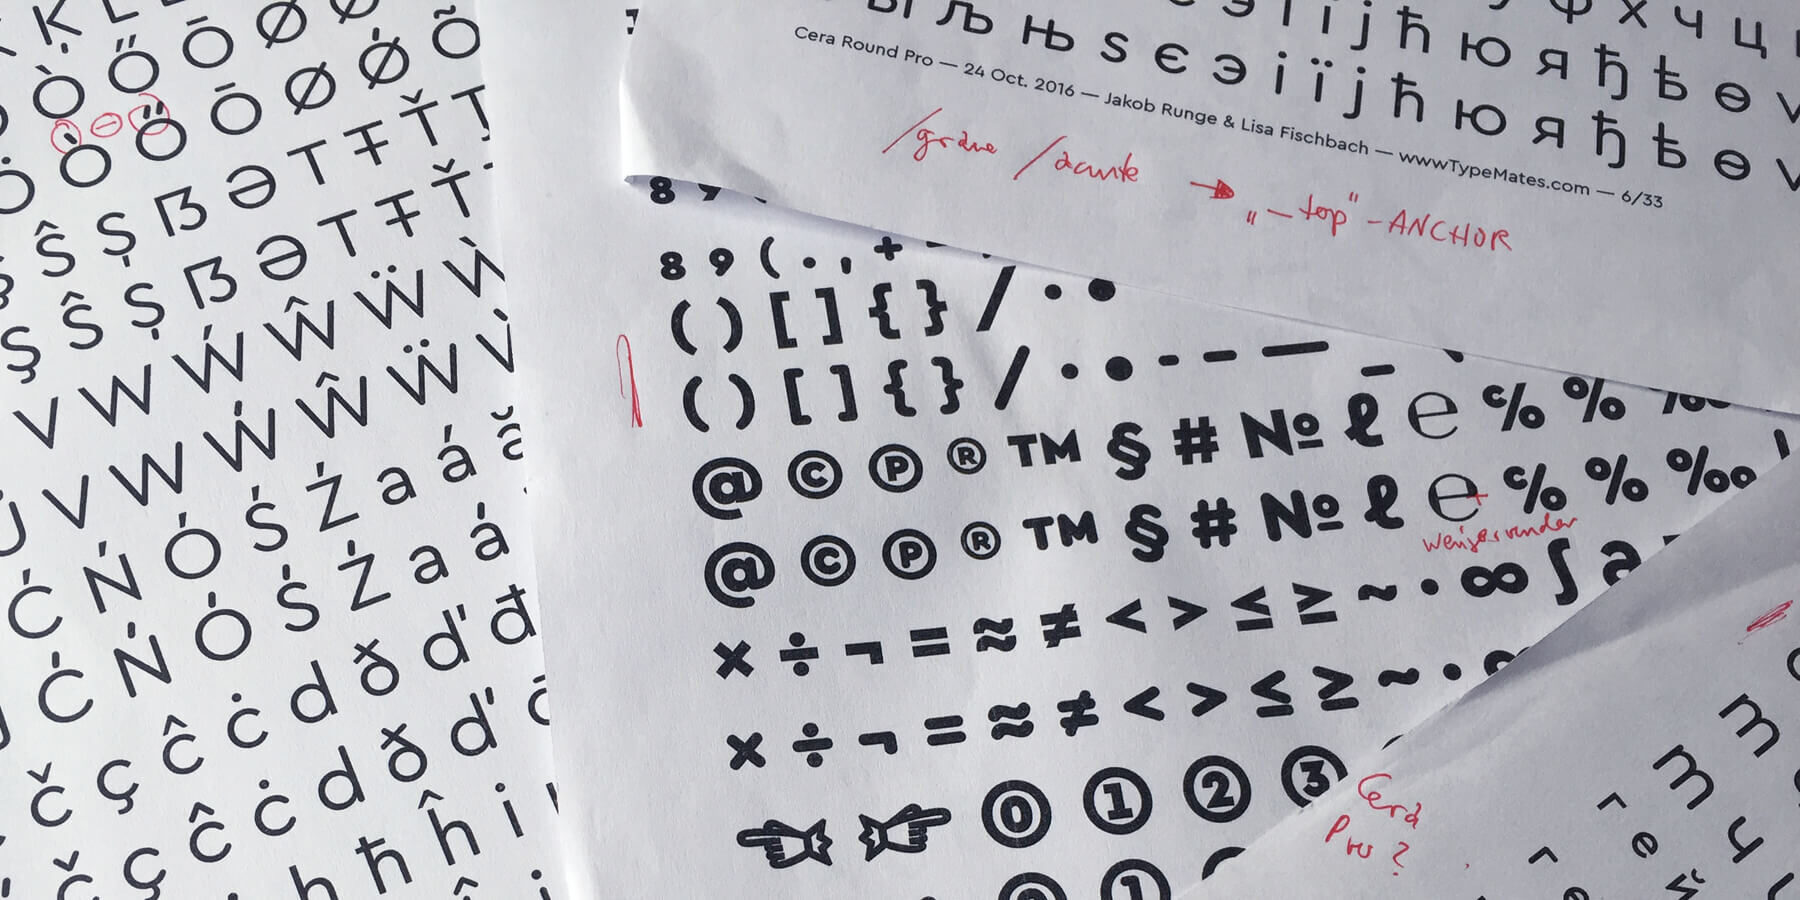 Ķ L
Ò Ő Ō Ø
Ò Ő Ō Ø Ǿ Õ
Ŝ Ș ẞ Ə T Ŧ Ť Ţ
Ş Ŝ Ș ẞ Ə T Ŧ Ť
V W Ẃ Ŵ Ẅ Ẁ
V W Ẃ Ŵ Ẅ
Ć Ń Ó Ś Ź a á
Ć Ń Ó Ś Ź a á
č ç ĉ ċ d ð ď đ
č ç ĉ ċ d ð ď
h ħ ĥ i
љ њ ѕ є э і ї ј ћ ю я ђ ѣ ѳ
і ї ј ћ ю я ђ ѣ ѳ
Cera Round Pro — 24 Oct. 2016 — Jakob Runge & Lisa Fischbach — wwwTypeMates.com — 6/33
/grave /acute → "_top"-ANCHOR
8 9
8 9 ( . , +
( ) [ ] { } / · •
( ) [ ] { } / · • - – —
@ © ℗ ® ™ § # № ℓ ℮ ℅ % ‰
@ © ℗ ® ™ § # № ℓ ℮ ℅ % ‰
× ÷ ¬ = ≈ ≠ < > ≤ ≥ ~ · ∞ ∫
× ÷ ¬ = ≈ ≠ < > ≤ ≥ ~ ·
☜ ☞ ⓪ ① ② ③
Cera
Pro?